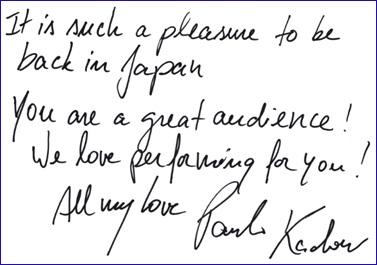 It is such a pleasure to be
back in Japan
You are a great audience!
We love performing for you!
All my love